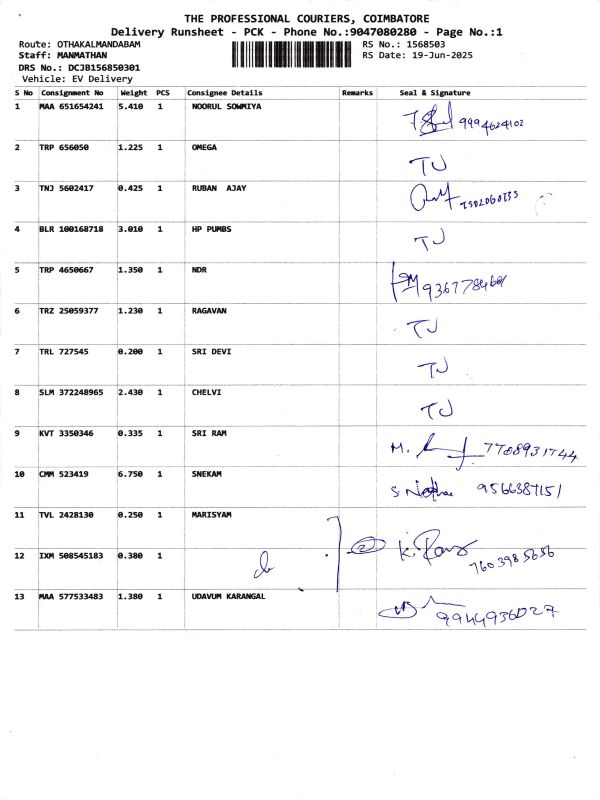 THE PROFESSIONAL COURIERS, COIMBATORE
Delivery Runsheet - PCK - Phone No.:9047080280 - Page No.:1
Route: OTHAKALMANDABAM RS No.: 1568503
Staff: MANMATHAN RS Date: 19-Jun-2025
DRS No.: DCJB156850301
Vehicle: EV Delivery
S No Consignment No Weight PCS Consignee Details Remarks Seal & Signature
1 MAA 651654241 5.410 1 NOORUL SOWMIYA 9994624102
2 TRP 656050 1.225 1 OMEGA TJ
3 TNJ 5602417 0.425 1 RUBAN AJAY
4 BLR 100168718 3.010 1 HP PUMBS TJ
5 TRP 4650667 1.350 1 NDR
6 TRZ 25059377 1.230 1 RAGAVAN TJ
7 TRL 727545 0.200 1 SRI DEVI TJ
8 SLM 372248965 2.430 1 CHELVI TJ
9 KVT 3350346 0.335 1 SRI RAM M. 7708931744
10 CMM 523419 6.750 1 SNEKAM 9566387151
11 TVL 2428130 0.250 1 MARISYAM
12 IXM 508545183 0.380 1 2 7603985656
13 MAA 577533483 1.380 1 UDAVUM KARANGAL 9944936027